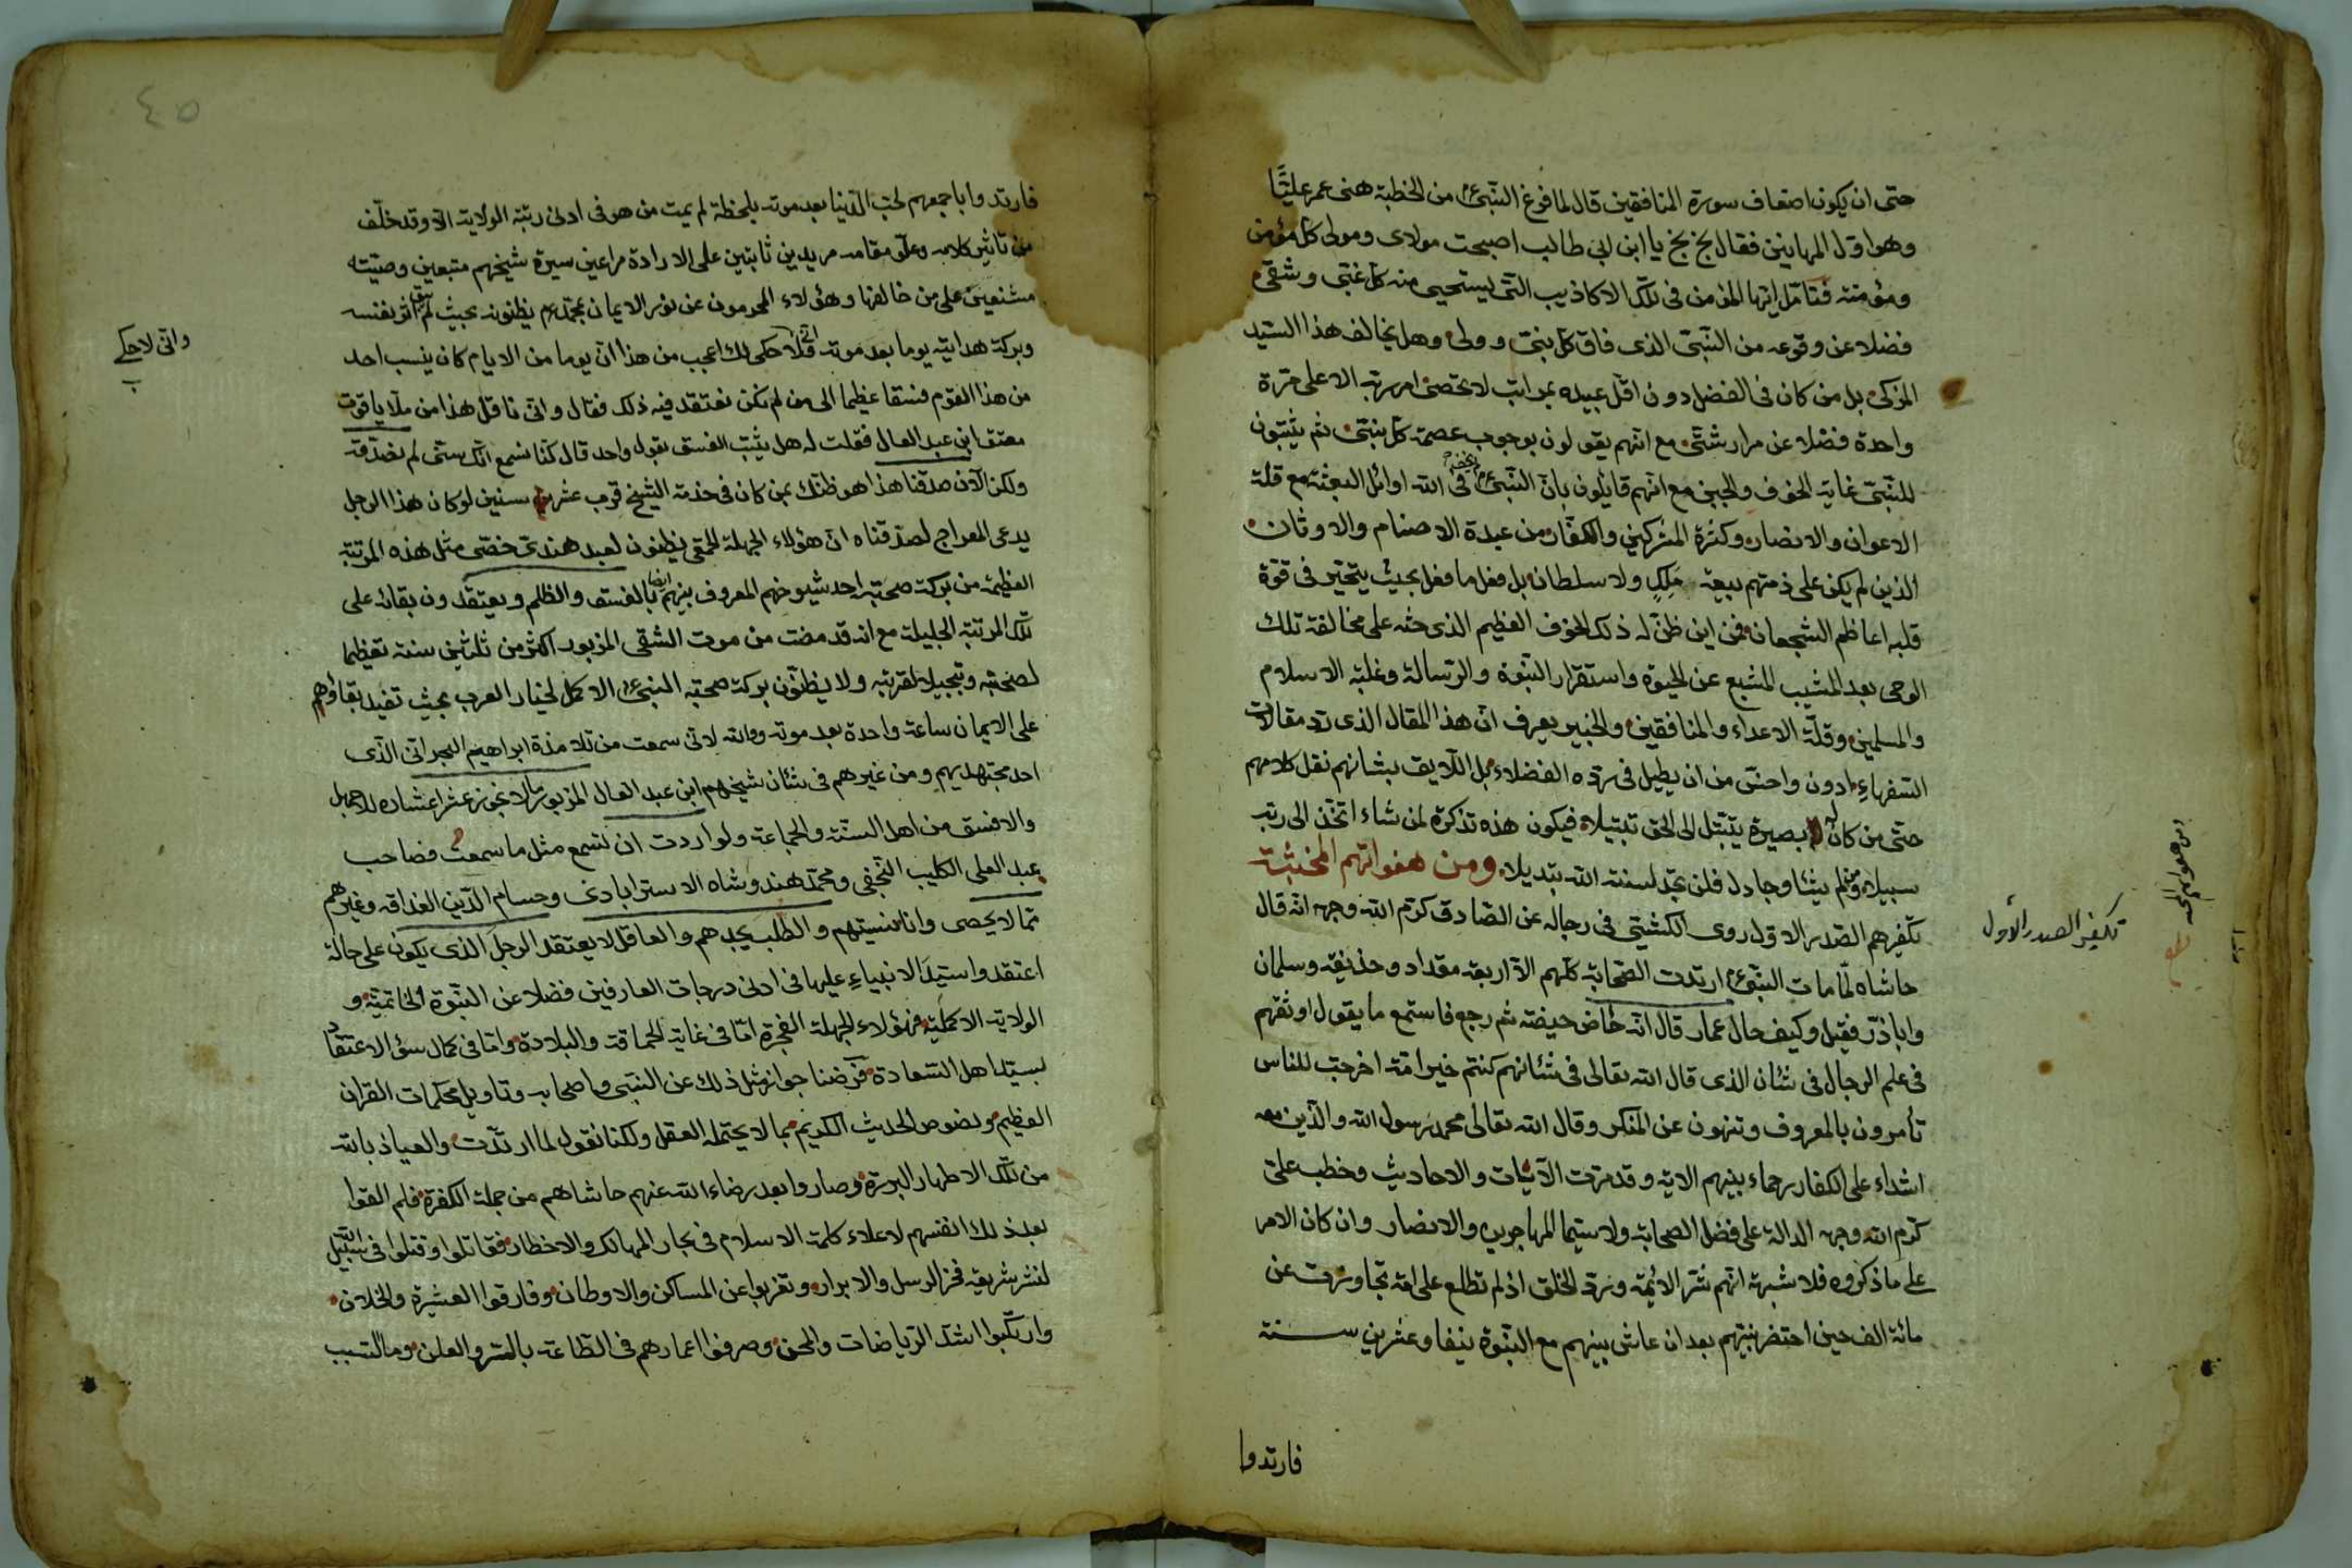 حتى ان يكون اضعاف سورة المنافقين قال لما فرغ النبىء من الخطبة هنى عمر عليًّا
وهو اول المهاينين فقال بخ بخ يا ابن ابى طالب اصبحت مولاى ومولى كل مؤمن
ومؤمنة فتامل ايها المؤمن فى تلك الاكاذيب التى يستحيى منه كل غبى وشقى
فضلا عن وقوعه من النبى الذى فاق كل نبى وولى وهل يخالف هذا السيد
المزكى بل من كان فى الفضل دون اقل عبيده بمراتب لا تحصى امر ربه الا على مرة
واحدة فضلا عن مرار شتى مع انهم يقولون بوجوب عصمة كل نبى ثم يثبتون
للنبى غاية الخوف والجبن مع انهم قائلون بان النبىء فى الله اوائل البعثة مع قلة
الاعوان والانصار وكثرة المشركين والكفار من عبدة الاصنام والاوثان
الذين لم يكن على ذمتهم بيعة مَلِكٍ ولا سلطان بل فعل ما فعل بحيث يتحير فى قوة
قلبه اعاظم الشجعان فمن اين ظن له ذلك الخوف العظيم الذى حثه على مخالفة تلك
الوحى بعد المشيب المشبع عن الحيوة واستقرار النبوة والرسالة وغلبة الاسلام
والمسلمين وقلة الاعداء والمنافقين والخبير يعرف ان هذا المقال الذى تد مقالات
السفهاء ادون واخس من ان يطيل فى رده الفضلاء بل اللايق بشانهم نقل كلامهم
حتى من كان له بصيرة يتبتل الى الحق تبتيلا فيكون هذه تذكرة لمن شاء اتخذ الى ربه
سبيلا ومن لم يشا وجادل فلن تجد لسنة الله تبديلا ومن هفواتهم المخبثة
تكفيرهم الصدر الاول روى الكشى فى رجاله عن الصادق كرم الله وجهه انه قال
حاشاه لما مات النبىء ارتدت الصحابة كلهم الا اربعة مقداد وحذيفة وسلمان
واباذر فقيل وكيف حال عمار قال انه حاض حيضة ثم رجع فاستمع ما يقول اوثقهم
فى علم الرجال فى شان الذى قال الله تعالى فى شانهم كنتم خير امة اخرجت للناس
تأمرون بالمعروف وتنهون عن المنكر وقال الله تعالى محمد رسول الله والذين معه
اشداء على الكفار رحماء بينهم الاية وقد مرت الآيات والاحاديث وخطب على
كرم الله وجهه الدالة على فضل الصحابة ولا سيما المهاجرين والانصار وان كان الامر
على ما ذكروه فلا شبهة انهم شر الائمة وردّ الخلق اذ لم تطلع على امة تجاوزت عن
مائة الف حين احتضر نبيهم بعد ان عاش بينهم مع النبوة نيفا وعشرين سنة
فارتدوا
تكفير الصدر الاول
ومن هفواتهم المخبثة
٤٥
فارتدوا باجمعهم لحب الدنيا بعد موته بلحظة لم يمت من هو فى ادنى رتبة الولاية الا وقد خلف
من تاثير كلامه وعلو مقامه مريدين ثابتين على الارادة مراعين سيرة شيخهم متبعين وصيته
مشنعين على من خالفها وهؤلاء المحرمون عن نور الايمان بمحمد يظنونه بحيث لم يبق اثر نفسه
وبركة هدايته يوما بعد موته فلاحكى لك اعجب من هذا ان يوما من الايام كان ينسب احد
من هذا القوم فسقا عظيما الى من لم نكن نعتقد فيه ذلك فقال وانى ناقل هذا من ملا ياقوت
معتق ابن عبد العال فقلت له هل يثبت الفسق بقول واحد قال كنا نسمع انك سنى لم نصدقه
ولكن الآن صدقنا هذا هو ظنك بمن كان فى خدمة الشيخ قرب عشر سنين لو كان هذا الرجل
يدعى المعراج لصدقناه ان هؤلاء الجهلة الحمقى يظنون لعبد هندى خصى مثل هذه المرتبة
العظيمة من بركة صحبته احد شيوخهم المعروف بينهم ايضا بالفسق والظلم ويعتقدون بقائه على
تلك المرتبة الجليلة مع انه قد مضت من موت الشقى المزبور اكثر من ثلثين سنة تعظيما
لصحبته وتبجيلا لقربته ولا يظنون بركة صحبة النبىء الاكمل لخيار العرب بحيث تفيد بقاؤهم
على الايمان ساعة واحدة بعد موته ووالله لانى سمعت من تلامذة ابراهيم البحرانى الذى
احد مجتهديهم ومن غيرهم فى شان شيخهم ابن عبد العال المزبور ما لا نجوز عشر اعشاره للاجهل
والافسق من اهل السنة والجماعة ولو اردت ان تسمع مثل ما سمعت فصاحب
عبد العلى الكليب النجفى ومحمد هندوشاه الاسترابادى وحسام الدين العذاقه وغيرهم
مما لا يحصى وانا نسيتهم والطلب يجدهم والعاقل لا يعتقد الرجل الذى يكون على حالة
اعتقدوا سيد الانبياء عليها فى ادنى درجات العارفين فضلا عن النبوة الخاتمية و
الولاية الاكملية فهؤلاء الجهلة الفجرة اما فى غاية الحماقة والبلادة واما فى كمال سؤ الاعتقاد
بسيد اهل السعادة فرضنا جواز مثل ذلك عن النبى واصحابه وتاويل محكمات القران
العظيم ونصوص الحديث الكريم مما لا يحتمله العقل ولكنا نقول لما ارتدت والعياذ بالله
من تلك الاطهار البررة وصاروا بعد رضاء الله عنهم حاشاهم من جملة الكفرة فلم القوا
بعد ذلك انفسهم لاعلاء كلمة الاسلام فى بحار المهالك والاخطار فقاتلوا وقتلوا فى سبيل الله
لنشر شريعة فخر الرسل والابرار وتغربوا عن المساكن والاوطان وفارقوا العشيرة والخلان
وارتكبوا اشد الرياضات والمحن وصرفوا اعمارهم فى الطاعة بالسر والعلن وما السبب
وانى لاحكى